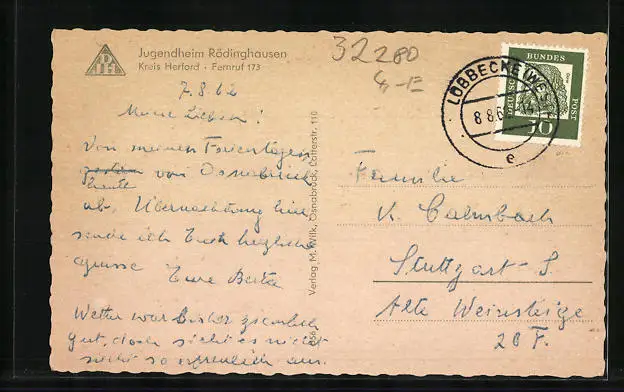 Jugendheim Rödinghausen
Kreis Herford · Fernruf 173
32280
7.8.62
Meine Lieben!
Von meinen Ferientagen
gestern von Osnabrück
heute
ab, Übernachtung hier
sende ich Euch herzliche
Grüsse Eure Berta
Wetter war bisher ziemlich
gut, doch sieht es nicht
so erfreulich aus.
Verlag M. Wilk, Osnabrück, Lotterstr. 110
LÜBBECKE (WESTF)
8.8.62
e
DEUTSCHE
BUNDES
POST
10
Familie
K. Calmbach
Stuttgart-S.
Alte Weinsteige
20 F.